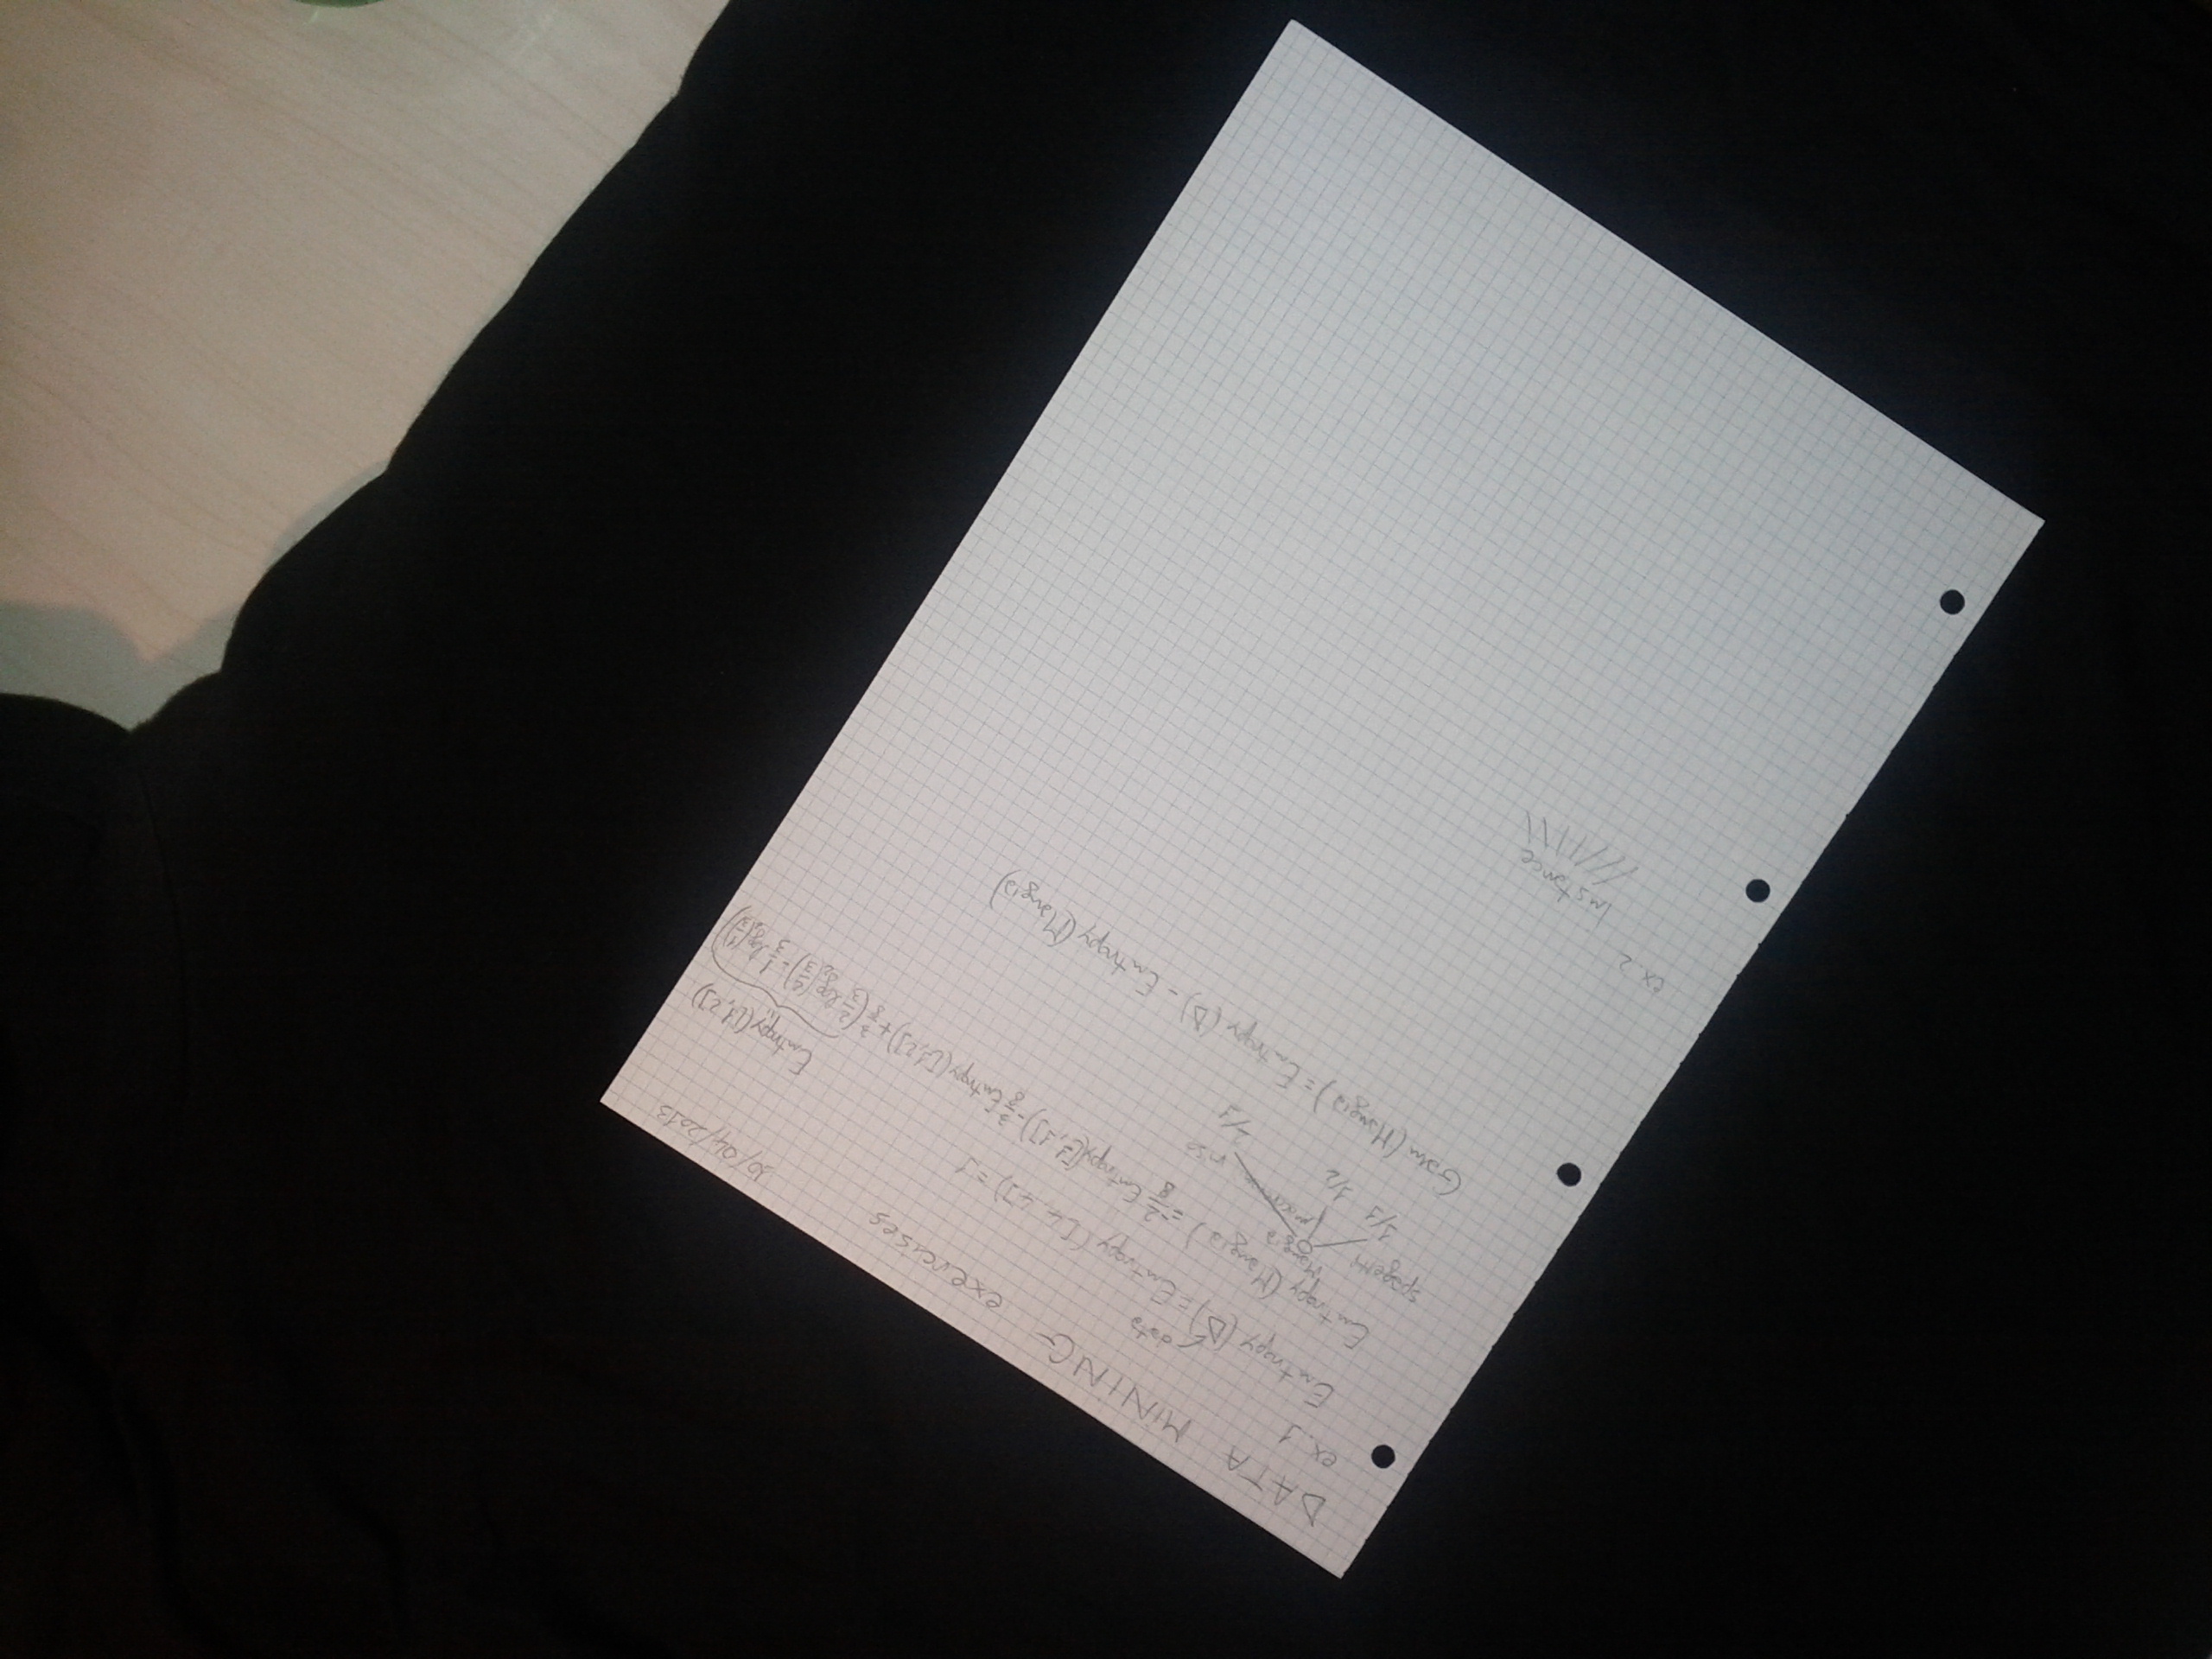 DATA MINING exercises 10/04/2013
ex. 1
data
Entropy(D) = Entropy([4,4]) = 1
Entropy([1,2])
Entropy(Mangia) = -2/8 Entropy([1,1]) - 3/8 Entropy([1,2]) + 3/8 (2/3 log2(2/3) - 1/3 log2(1/3))
Mangia
spagetti riso
1/1 1/2 2/1
Gain(Mangia) = Entropy(D) - Entropy(Mangia)
ex. 2
Instance